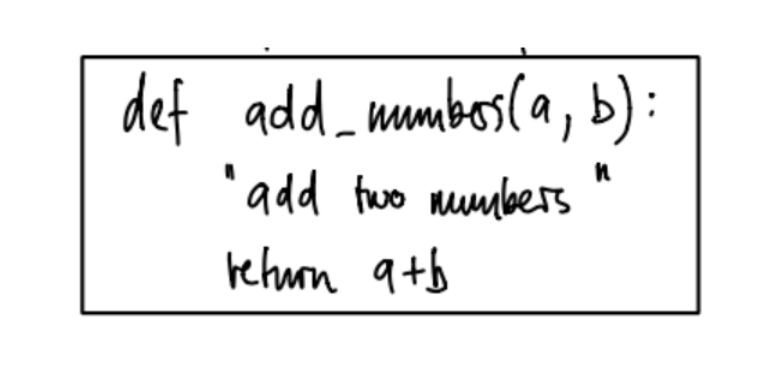 def add_numbers(a, b):
"add two numbers"
return a+b